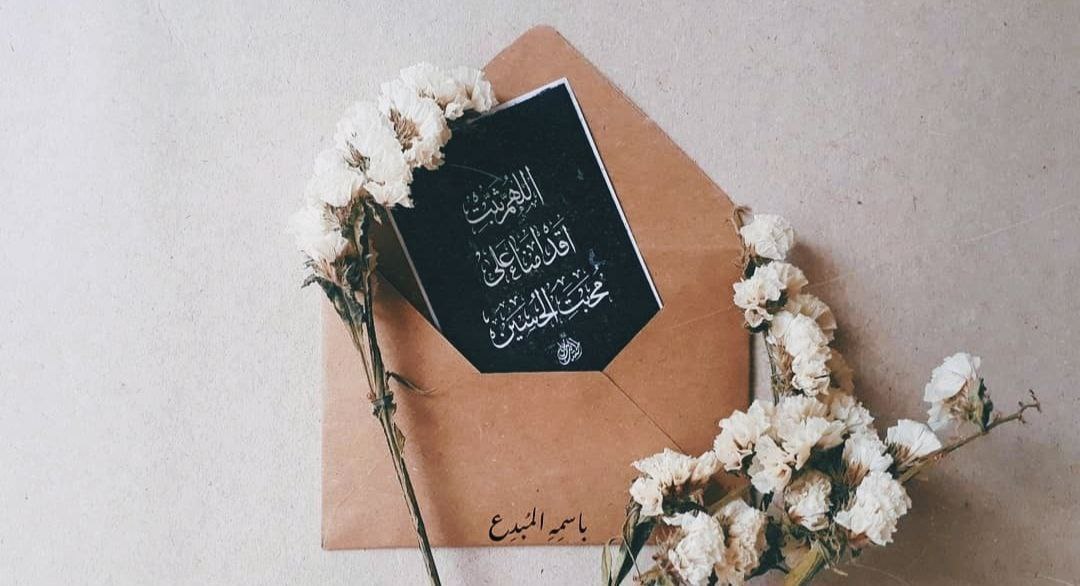 اللهُمَّ ثَبِّتْ
أَقْدامَنا عَلى
مُحَبَّتِ الحُسَین
باسمِهِ المُبدِع